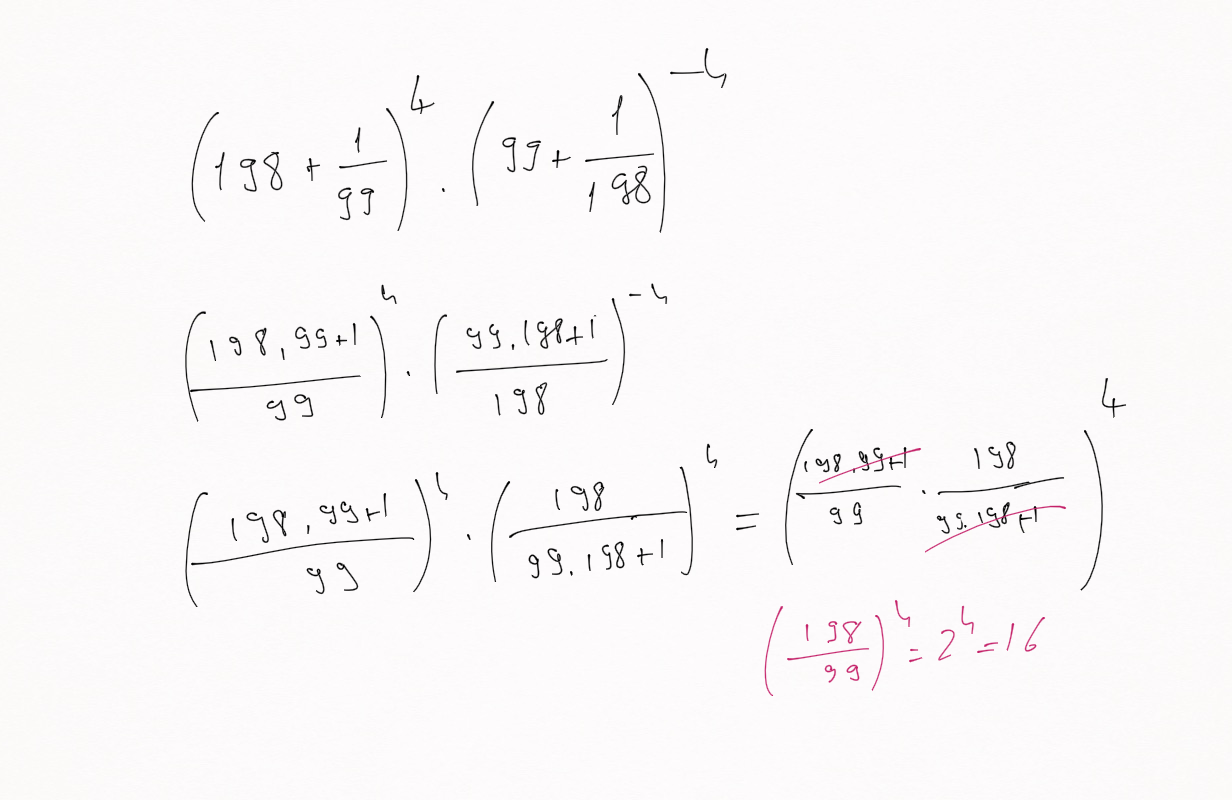 (198 + 1/99)^4 . (99 + 1/198)^-4
((198.99+1)/99)^4 . ((99.198+1)/198)^-4
((198.99+1)/99)^4 . (198/(99.198+1))^4 = ((198.99+1)/99 . 198/(99.198+1))^4
(198/99)^4 = 2^4 = 16